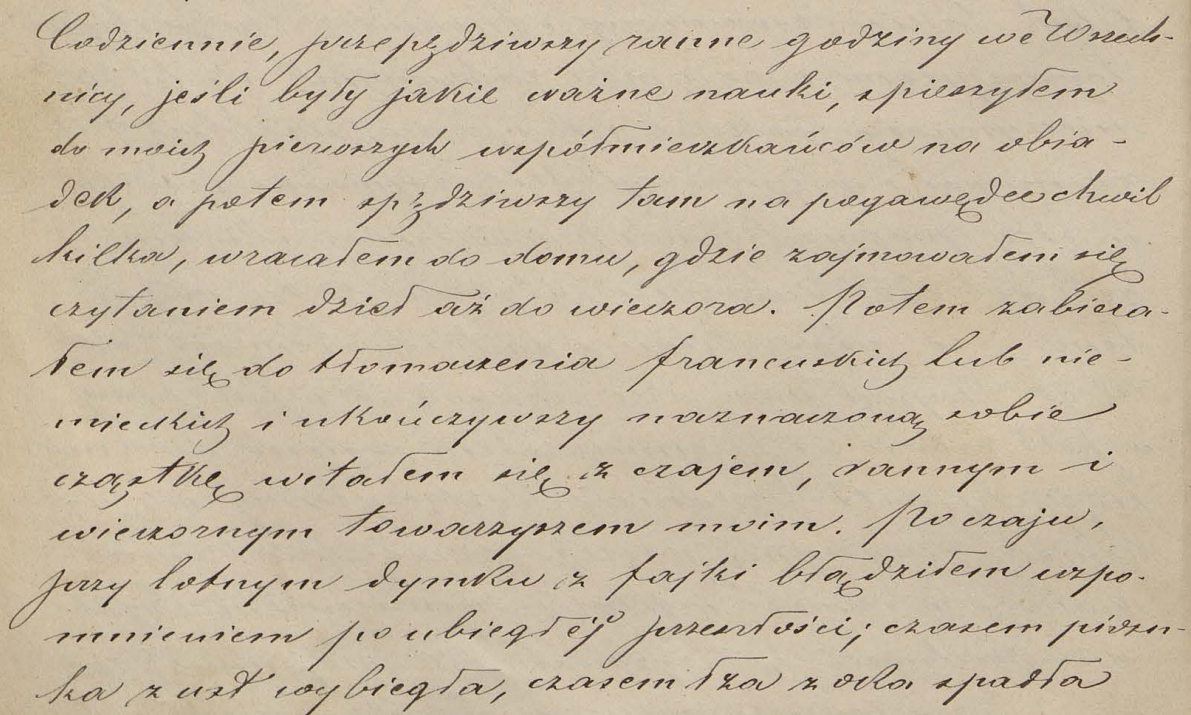 Codziennie, przepędziwszy ranne godziny we Wszech-
nicy, jeśli były jakie ważne nauki, spieszyłem
do moich pierwszych współmieszkańców na obia-
dek, a potem spędziwszy tam na pogawędce chwil
kilka, wracałem do domu, gdzie zajmowałem się
czytaniem dzieł aż do wieczora. Potem zabiera-
łem się do tłomaczenia francuskich lub nie-
mieckich i ukończywszy naznaczoną sobie
cząstkę witałem się z czajem, rannym i
wieczornym towarzyszem moim. Po czaju,
przy lotnym dymku z fajki błądziłem wspo-
mnieniem po ubiegłéj przeszłości; czasem piosn-
ka z ust wybiegła, czasem łza z oka spadła